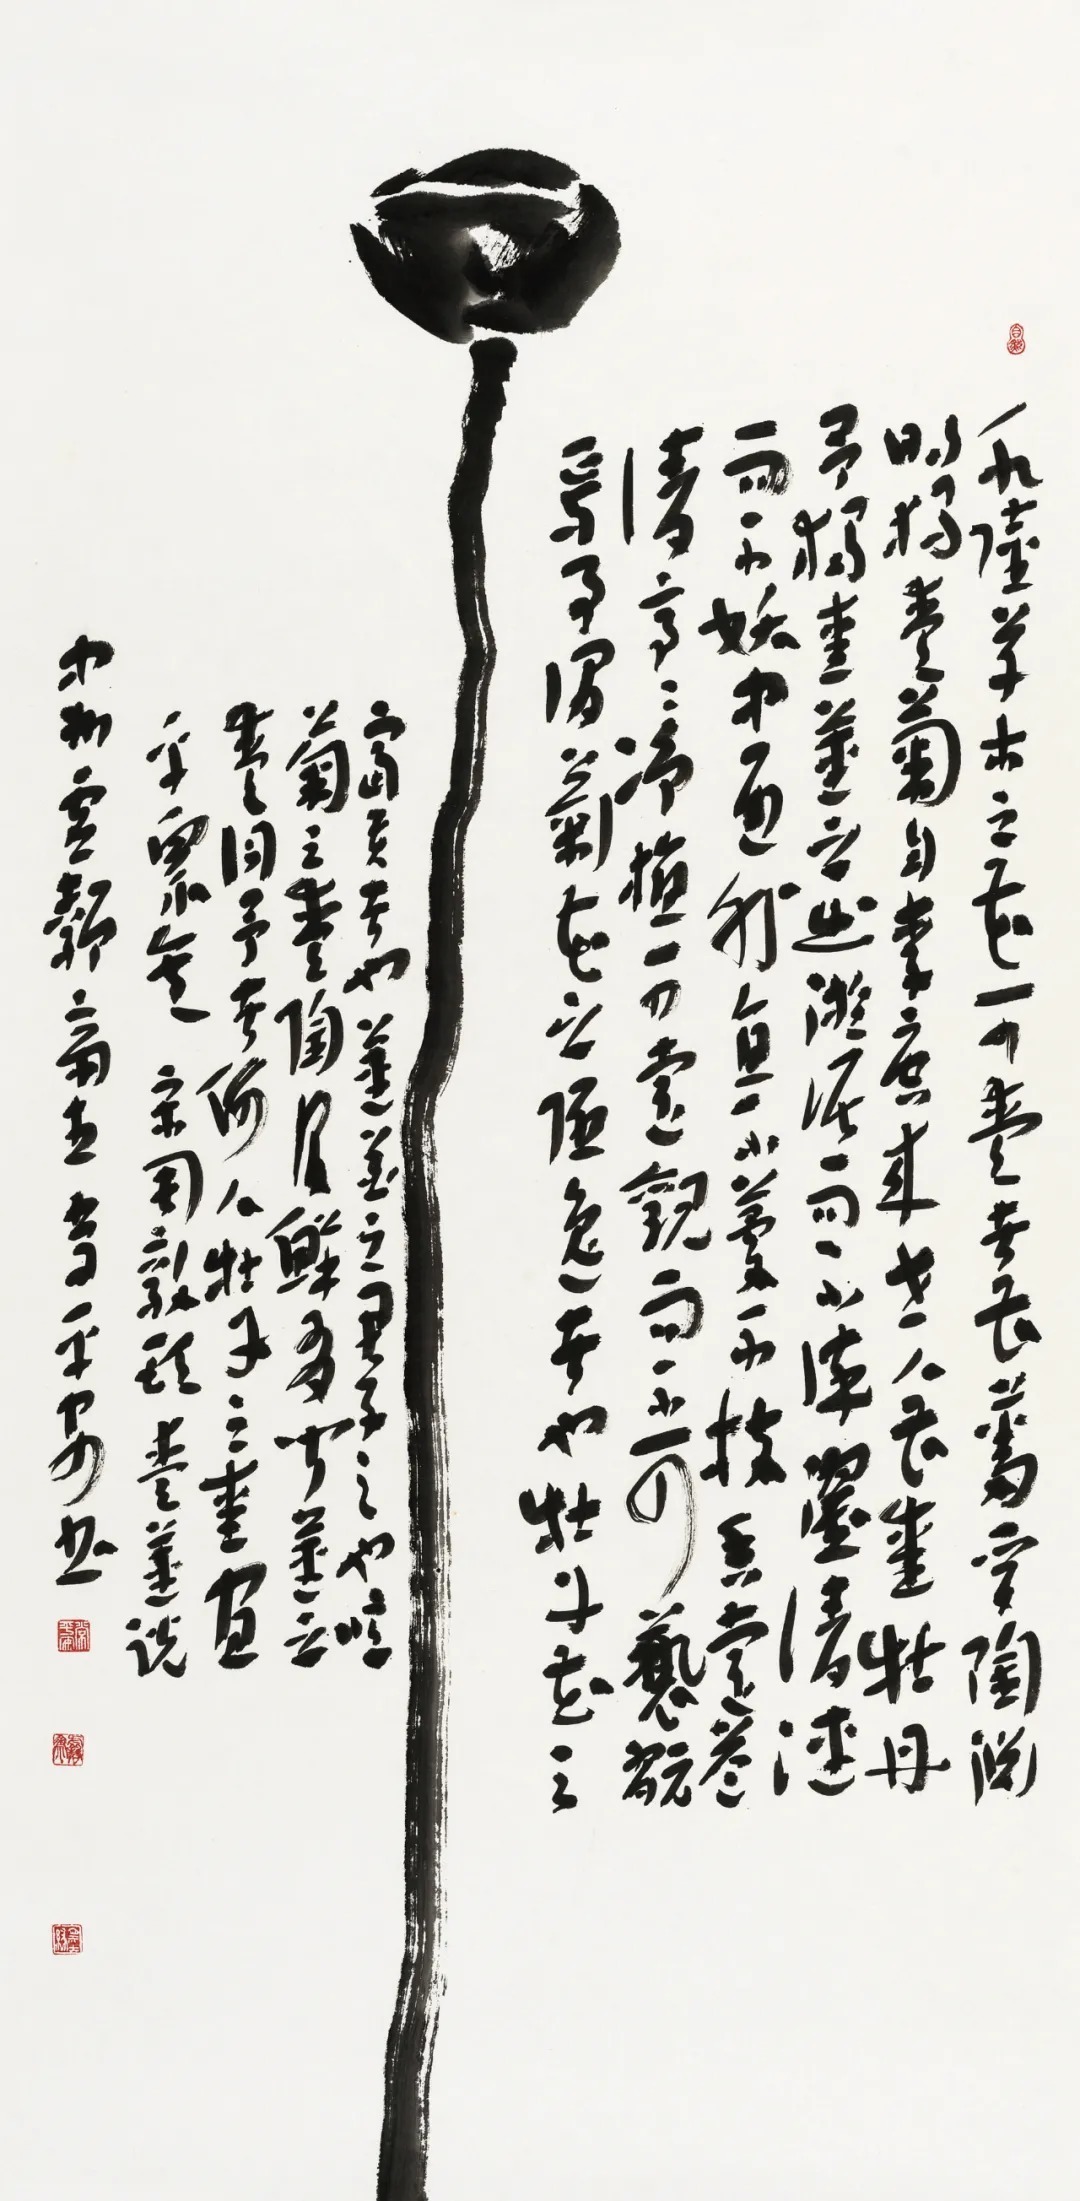 水陸草木之花可愛者甚蕃晉陶淵
明獨愛菊自李唐來世人甚愛牡丹
予獨愛蓮之出淤泥而不染濯清漣
而不妖中通外直不蔓不枝香遠益
清亭亭淨植可遠觀而不可褻翫
焉予謂菊花之隱逸者也牡丹花之
富貴者也蓮花之君子之也噫
菊之愛陶後鮮有聞蓮之
愛同予者何人牡丹之愛宜
乎眾矣 宋周敦頤愛蓮說
中州 齋主 平 書